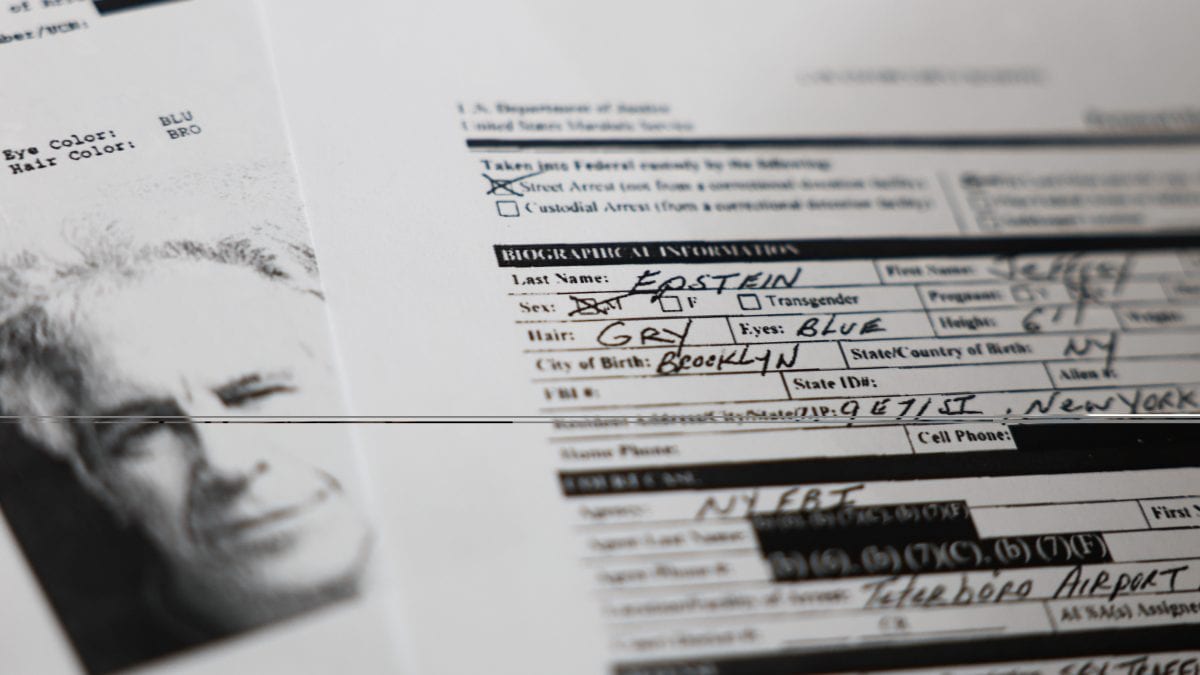 Eye Color: BLU
Hair Color: BRO
U.S. Department of Justice
United States Marshals Service
Taken into Federal custody by the following:
Street Arrest (not from a correctional detention facility)
Custodial Arrest (from a correctional detention facility)
BIOGRAPHICAL INFORMATION
Last Name: EPSTEIN First Name: Jeffrey
Sex: M F Transgender Pregnant:
Hair: GRY Eyes: BLUE Height: 6'1" Weight:
City of Birth: BROOKLYN State/Country of Birth: NY
FBI #: State ID#: Alien #:
Resident Address/City/State/ZIP: 9 E 71 ST. NEW YORK
Home Phone: Cell Phone:
COURT CASE
Agency: NY FBI
Agent Last Name: (b)(6), (b)(7)(C), (b)(7)(F) First
Agent Phone #: (b) (6), (b) (7)(C), (b) (7)(F)
Location/Facility of Arrest: Teterboro AIRPORT
AUSA(s) Assigne